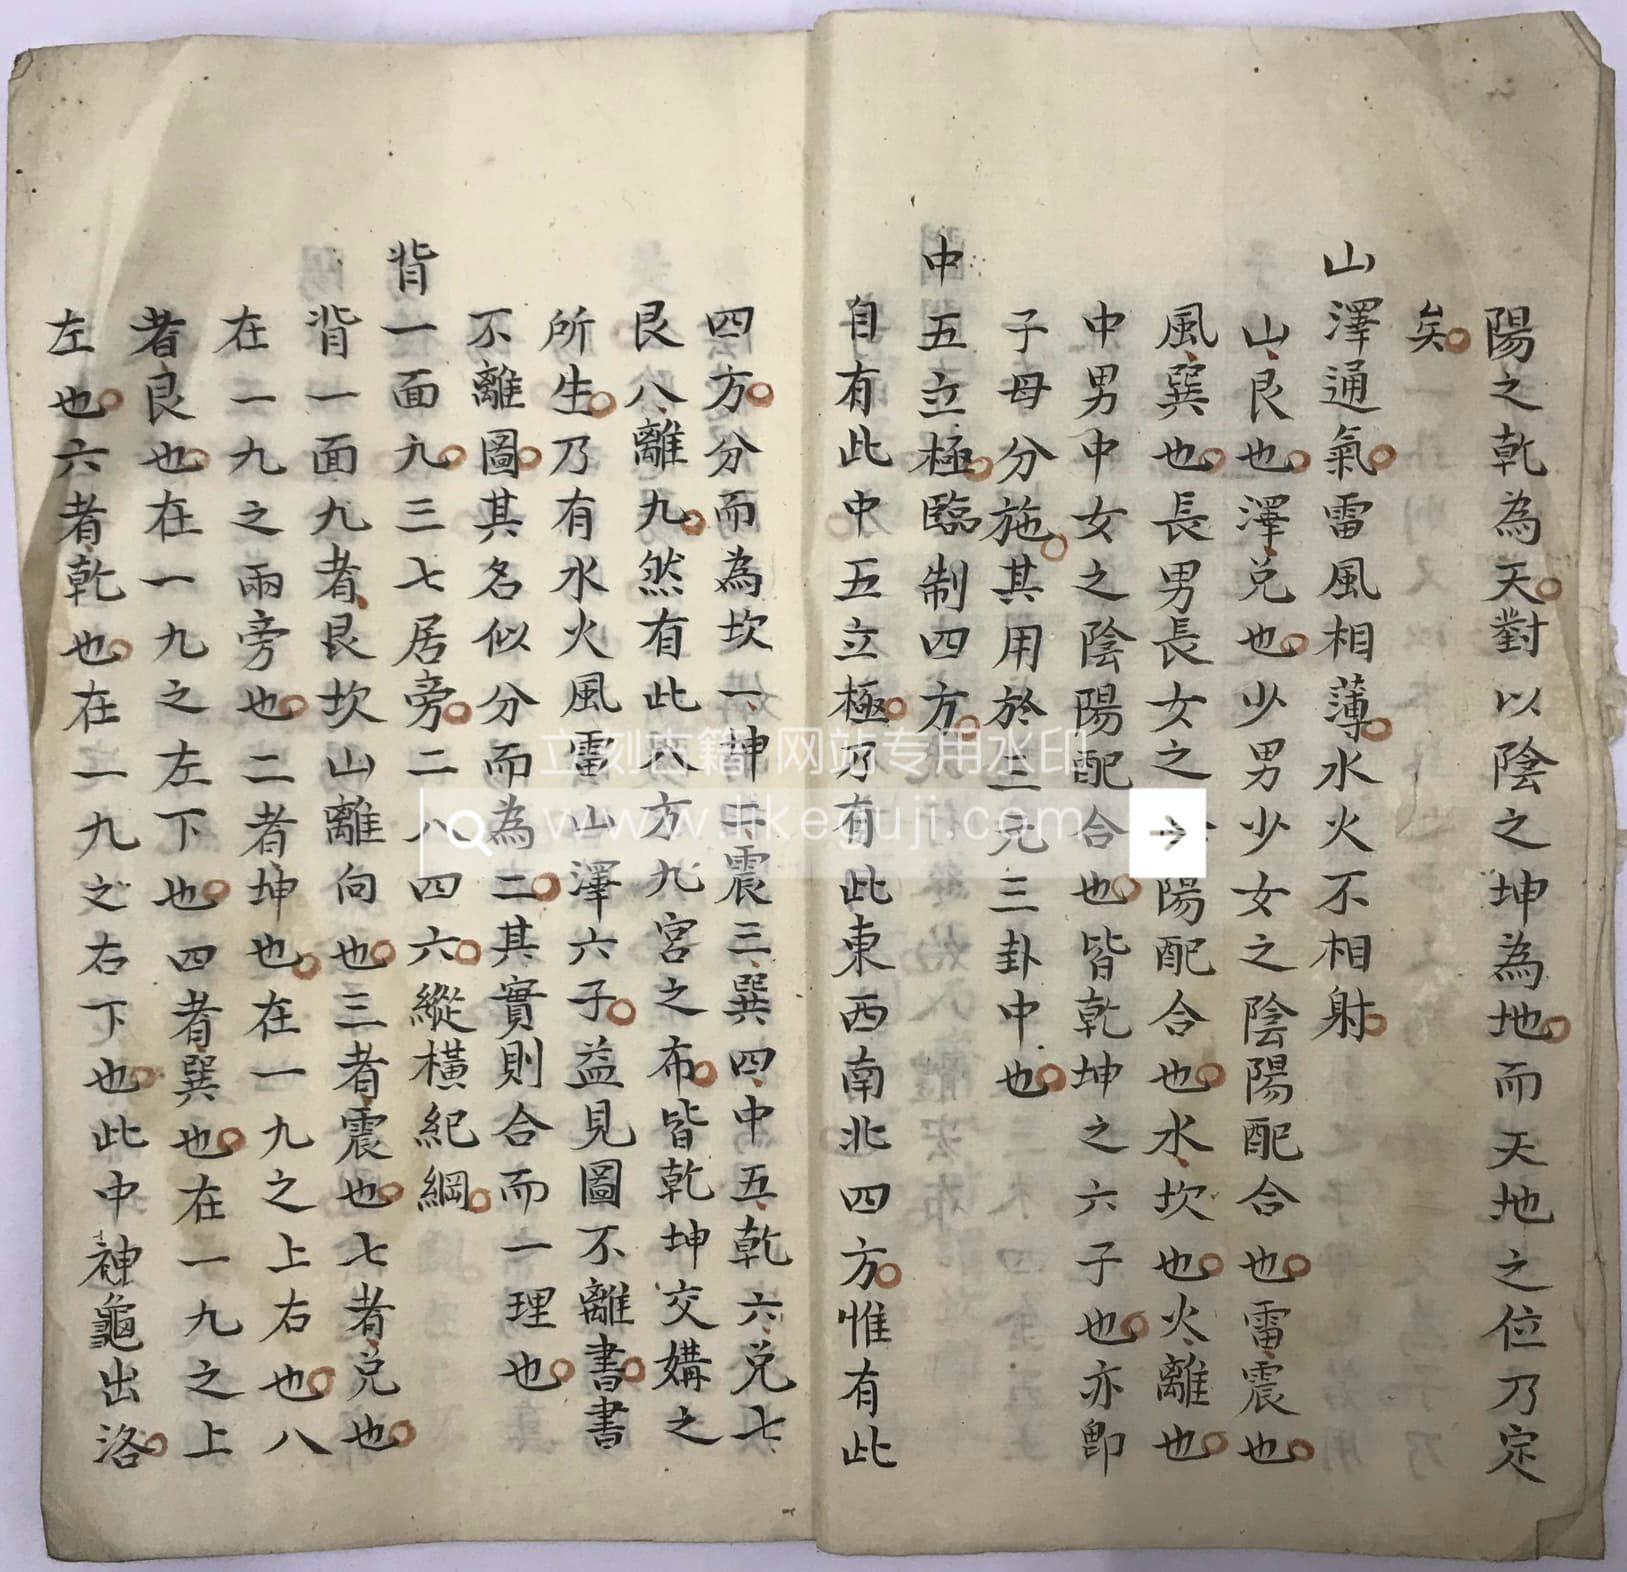 陽之乾為天對以陰之坤為地而天地之位乃定
矣
山澤通氣雷風相薄水火不相射
山艮也澤兌也少男少女之陰陽配合也雷震也
風巽也長男長女之陽配合也水坎也火離也
中男中女之陰陽配合也皆乾坤之六子也亦即
子母分施其用於三兄三卦中也
中五立極臨制四方
自有此中五立極乃有此東西南北四方惟有此
四方分而為坎一坤二震三巽四中五乾六兌七
艮八離九然有此八方九宮之布皆乾坤交媾之
所生乃有水火風雷山澤六子益見圖不離書書
不離圖其名似分而為二其實則合而一理也
背一面九三七居旁二八四六縱橫紀綱
背一面九者艮坎山離向也三者震也七者兌也
在一九之兩旁也二者坤也在一九之上右也八
者艮也在一九之左下也四者巽也在一九之上
左也六者乾也在一九之右下也此中神龜出洛
立刻古籍 网站专用水印
www.likeguji.com